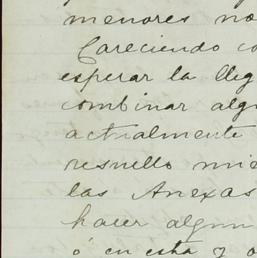 menores no
Careciendo co
esperar la lleg
combinar algu
actualmente
resuello mie
las Anexas
hacer algun
ó en esta y o